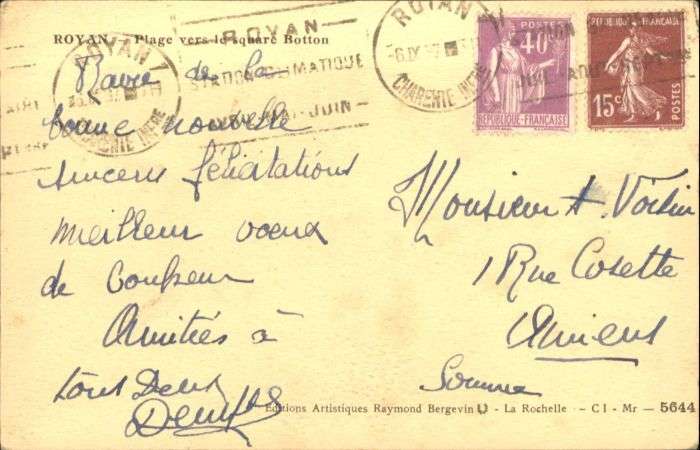 ROYAN — Plage vers le square Botton
Ravie de la
bonne nouvelle
sincères félicitations
meilleur voeux
de bonheur
Amitiés à
tous Deux
ROYAN
STATION CLIMATIQUE
JUIN
ROYAN
CHARENTE INFRE
ROYAN
-6.IX 37
CHARENTE INFRE
POSTES
40c
REPUBLIQUE-FRANÇAISE
REPUBLIQUE FRANÇAISE
15c
POSTES
Monsieur A. Voisin
1 Rue Cosette
Amiens
Somme
Editions Artistiques Raymond Bergevin - La Rochelle - C I - Mr — 5644